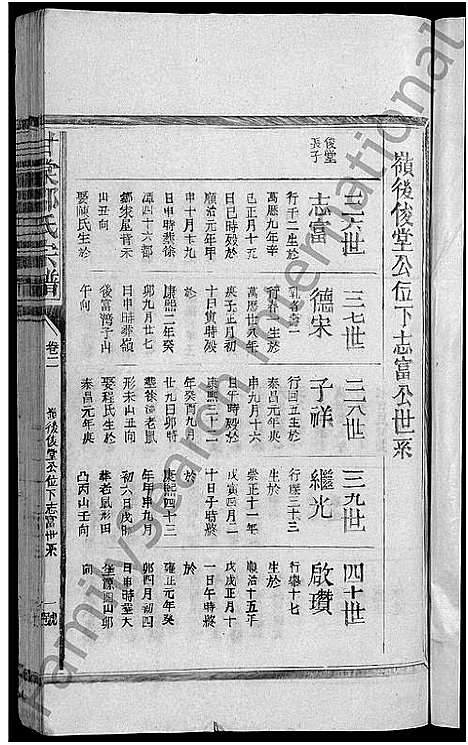 嶺後俊堂公位下志富公世系
三六世
三七世
三八世
三九世
四十世
俊堂
長子
志富
行千二生於
萬曆九年辛
巳正月十五
日巳時歿於
順治元年甲
申十月十九
日申時葬徐
潭四十六都
山丑向
娶陳氏生於
德宋
萬曆廿八年
庚子正月初
十日寅時歿於
康熙二年癸
卯九月廿七
日申時葬嶺
後富灣子山
午向
子祥
行回五生於
泰昌元年庚
申九月十六
日午時歿於
康熙三十二
年癸酉九月
廿九日卯時
葬徐潭老鼠
形未山丑向
娶程氏生於
泰昌元年庚
繼光
行榮三十三
生於
崇正十一年
戊寅四月二
十日子時歿
於
康熙四十三
年甲申九月
初六日戌時
葬老鼠形田
凸丙山壬向
啟瓚
行舉十七
生於
順治十五年
戊戌正月十
一日午時歿
於
雍正元年癸
卯四月初四
日申時葬大
向
甘棠 氏宗譜
卷二
嶺後俊堂公位下志富世系
FamilySearch International